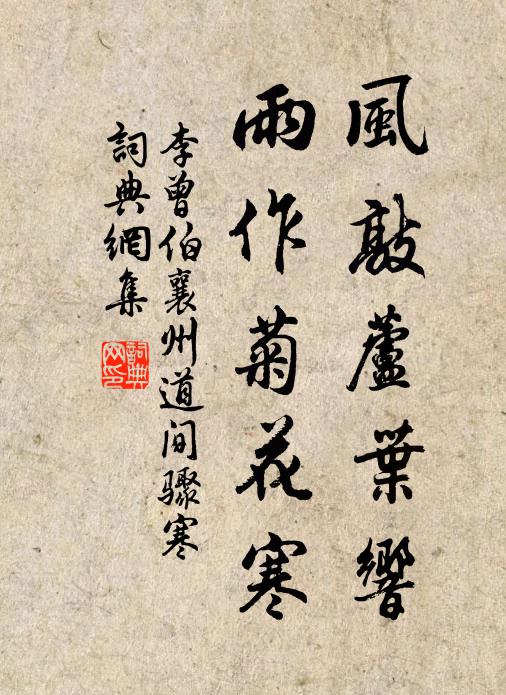 風敲蘆葉響
雨作菊花寒
李曾伯襄州道间驟寒
詞典網集
詞典
网印